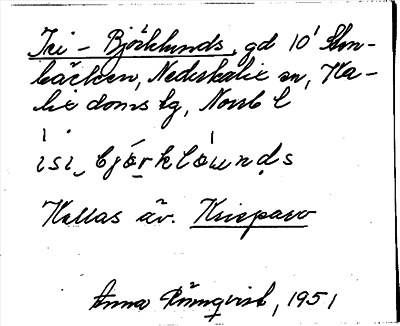 Isi - Björklunds, gd 10' Sten-
bäcken, Nederkalix sn, Ka-
lix doms lg, Norrb l
isi, björklɷnds
Kallas äv. Krispavo
Anna Rönnqvist, 1951